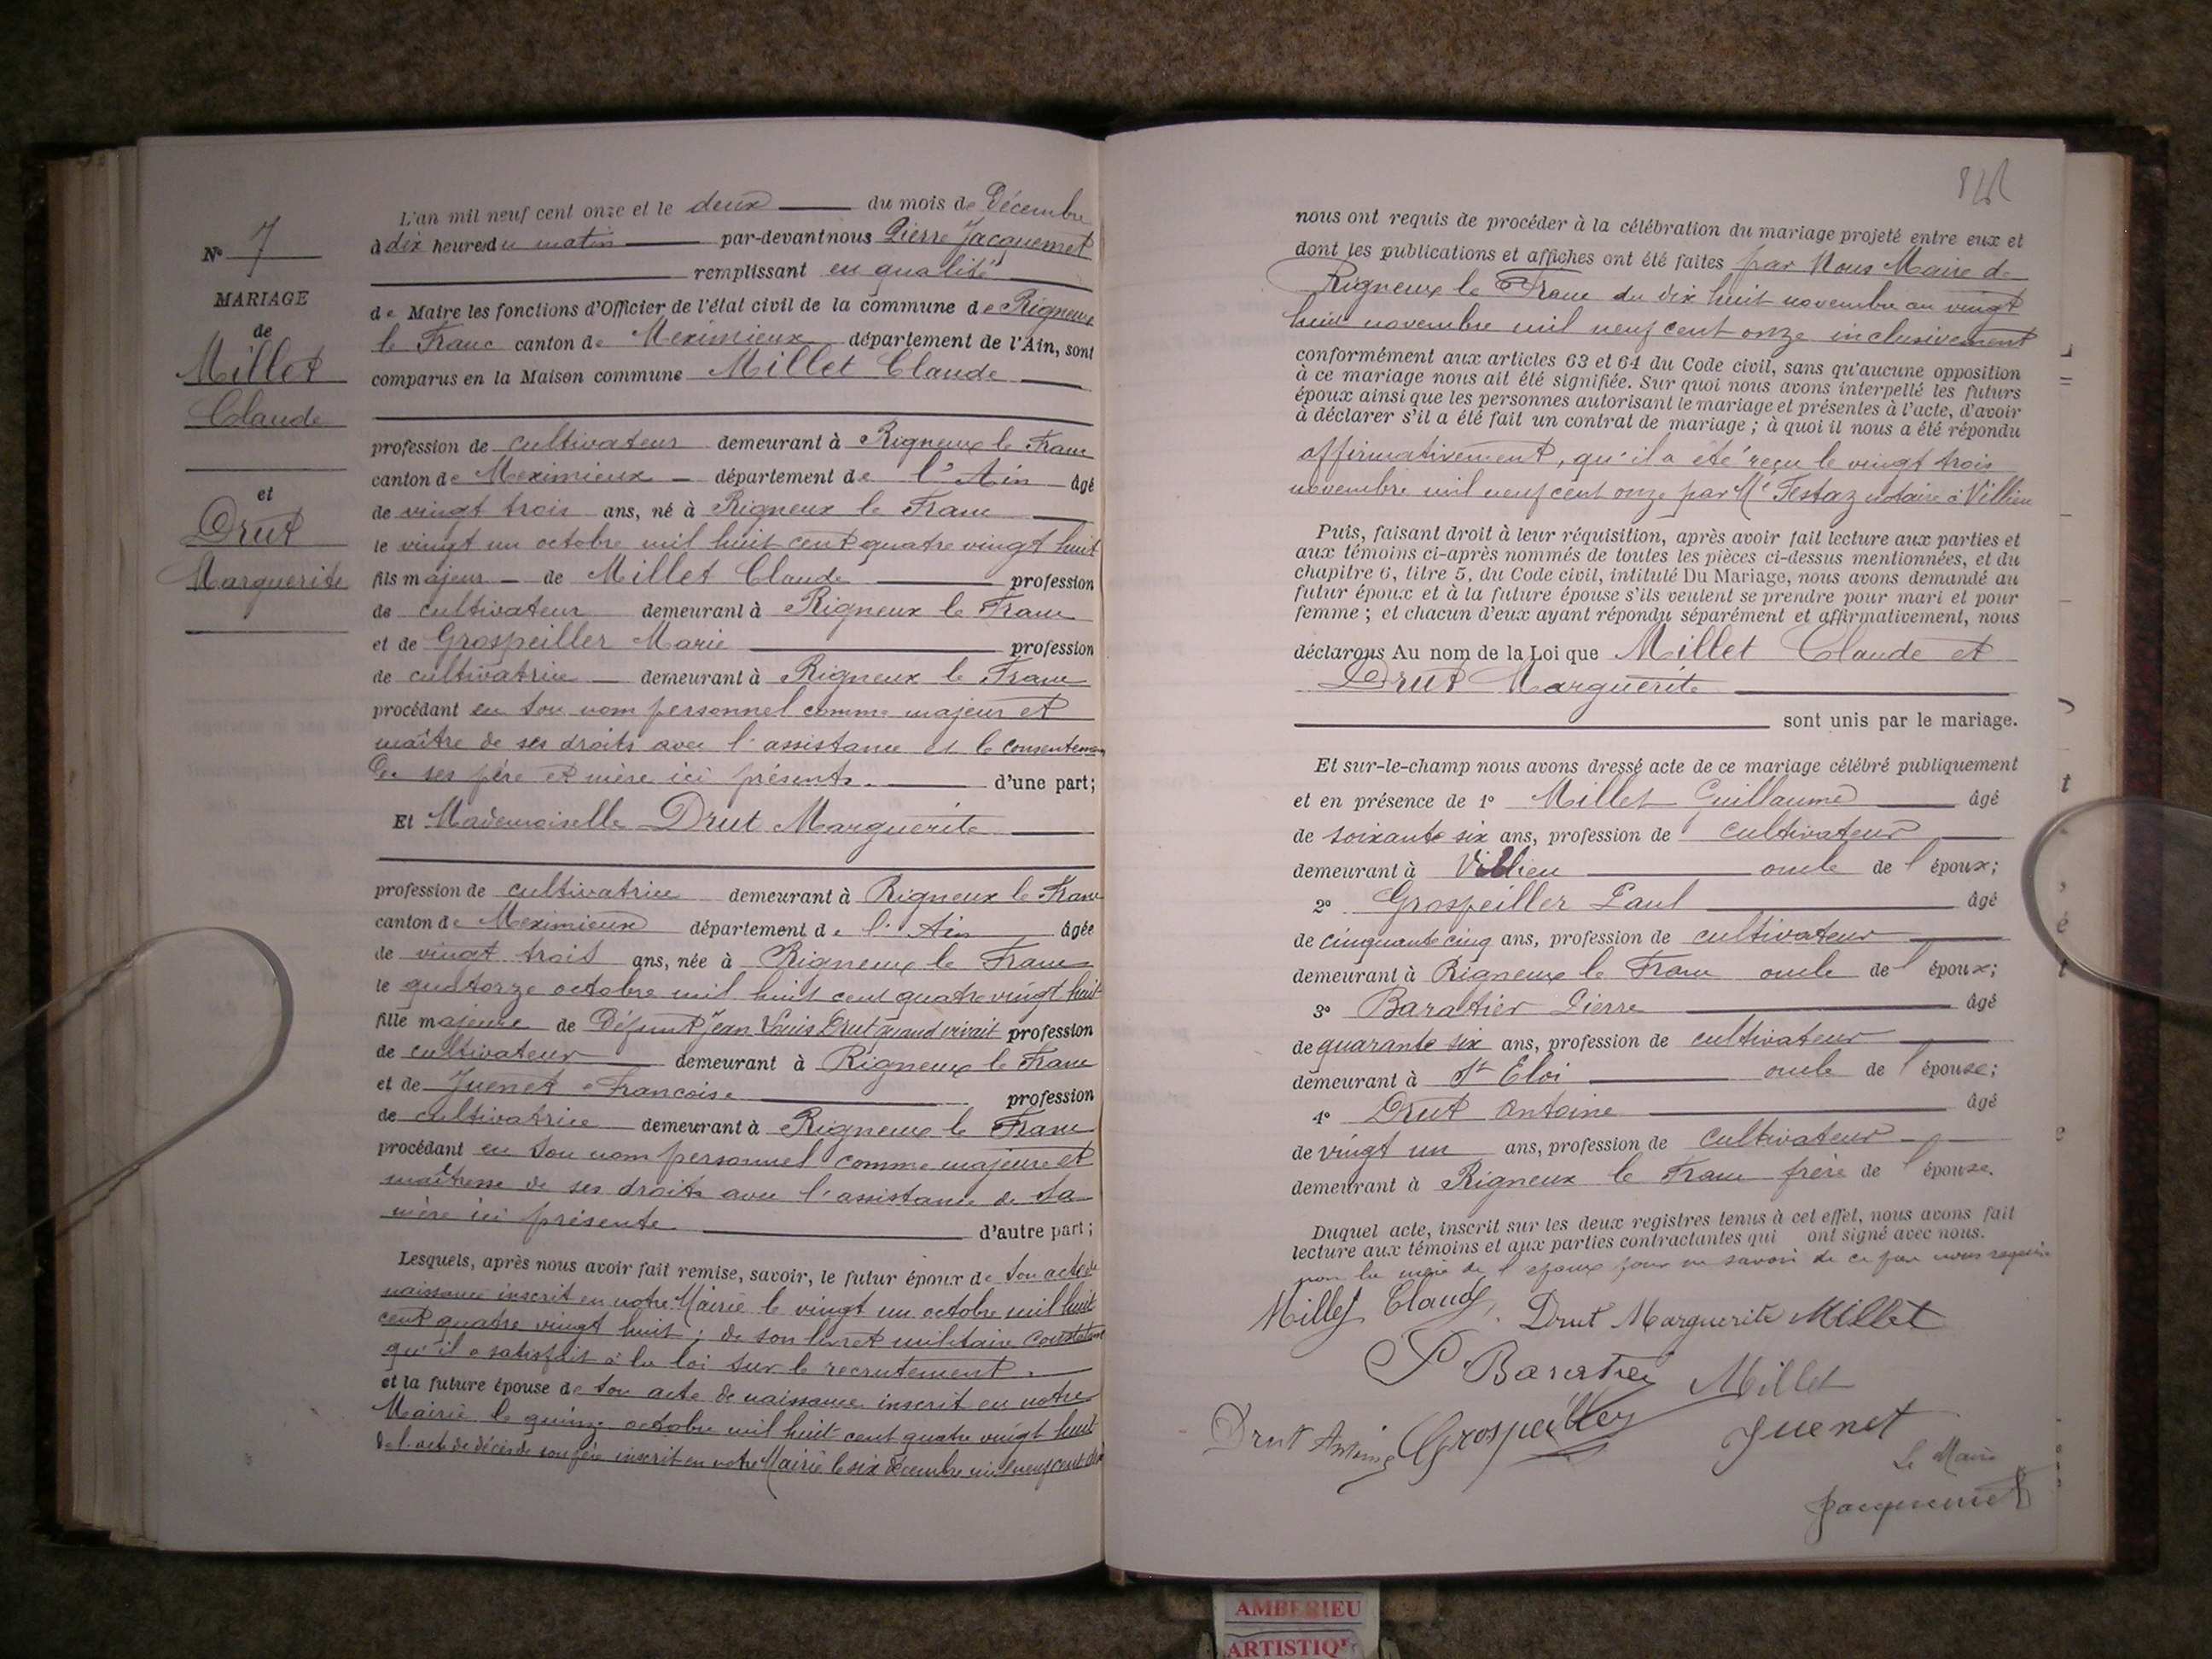 N° 7
MARIAGE
de
Millet
Claude
et
Drut
Marguerite
L'an mil neuf cent onze et le deux du mois de Décembre
à dix heures du matin par-devant nous Pierre Jacquemet
remplissant en qualité
de Maire les fonctions d'Officier de l'état civil de la commune de Rigneux
le Franc canton de Meximieux département de l'Ain, sont
comparus en la Maison commune Millet Claude
profession de cultivateur demeurant à Rigneux le Franc
canton de Meximieux département de l'Ain âgé
de vingt trois ans, né à Rigneux le Franc
le vingt un octobre mil huit cent quatre vingt huit
fils majeur de Millet Claude profession
de cultivateur demeurant à Rigneux le Franc
et de Grospeiller Marie profession
de cultivatrice demeurant à Rigneux le Franc
procédant en son nom personnel comme majeur et
maître de ses droits avec l'assistance et le consentement
De ses père et mère ici présents. d'une part;
Et Mademoiselle Drut Marguerite
profession de cultivatrice demeurant à Rigneux le Franc
canton de Meximieux département de l'Ain âgée
de vingt trois ans, née à Rigneux le Franc
le quatorze octobre mil huit cent quatre vingt huit
fille majeure de Défunt Jean Louis Drut quand vivait profession
de cultivateur demeurant à Rigneux le Franc
et de Juenet Francoise profession
de cultivatrice demeurant à Rigneux le Franc
procédant en son nom personnel comme majeure et
maîtresse de ses droits avec l'assistance de sa
mère ici présente d'autre part;
Lesquels, après nous avoir fait remise, savoir, le futur époux de son acte de
naissance inscrit en notre Mairie le vingt un octobre mil huit
cent quatre vingt huit; de son livret militaire constatant
qu'il a satisfait à la loi sur le recrutement.
et la future épouse de son acte de naissance inscrit en notre
Mairie le quinze octobre mil huit cent quatre vingt huit
de l'acte de décès de son père inscrit en notre Mairie le six décembre mil neuf cent dix
nous ont requis de procéder à la célébration du mariage projeté entre eux et
dont les publications et affiches ont été faites par Nous Maire de
Rigneux le Franc du dix huit novembre au vingt
huit novembre mil neuf cent onze inclusivement
conformément aux articles 63 et 64 du Code civil, sans qu'aucune opposition
à ce mariage nous ait été signifiée. Sur quoi nous avons interpellé les futurs
époux ainsi que les personnes autorisant le mariage et présentes à l'acte, d'avoir
à déclarer s'il a été fait un contrat de mariage; à quoi il nous a été répondu
affirmativement, qu'il a été reçu le vingt trois
novembre mil neuf cent onze par Me Testaz notaire à Villieu
Puis, faisant droit à leur réquisition, après avoir fait lecture aux parties et
aux témoins ci-après nommés de toutes les pièces ci-dessus mentionnées, et du
chapitre 6, titre 5, du Code civil, intitulé Du Mariage, nous avons demandé au
futur époux et à la future épouse s'ils veulent se prendre pour mari et pour
femme; et chacun d'eux ayant répondu séparément et affirmativement, nous
déclarons Au nom de la Loi que Millet Claude et
Drut Marguerite
sont unis par le mariage.
Et sur-le-champ nous avons dressé acte de ce mariage célébré publiquement
et en présence de 1° Millet Guillaume âgé
de soixante six ans, profession de cultivateur
demeurant à Villieu oncle de l'époux;
2° Grospeiller Paul âgé
de cinquante cinq ans, profession de cultivateur
demeurant à Rigneux le Franc oncle de l'époux;
3° Baratier Pierre âgé
de quarante six ans, profession de cultivateur
demeurant à St Eloi oncle de l'épouse;
4° Drut Antoine âgé
de vingt un ans, profession de cultivateur
demeurant à Rigneux le Franc frère de l'épouse.
Duquel acte, inscrit sur les deux registres tenus à cet effet, nous avons fait
lecture aux témoins et aux parties contractantes qui ont signé avec nous.
non la mère de l'epoux pour ne savoir de ce par nous requise
Millet Claude, Drut Marguerite Millet
P Baratier Millet
Drut Antoine Grospeiller Juenet
Le Maire
Jacquemet
AMBERIEU
ARTISTIQ